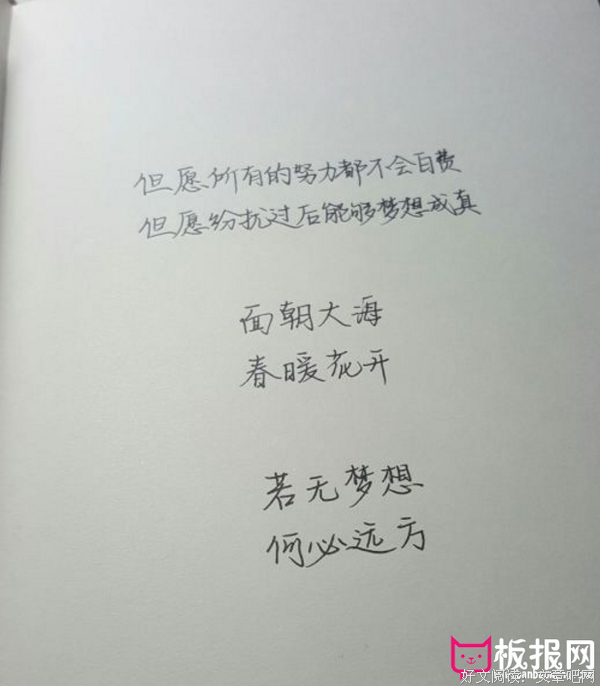 但愿所有的努力都不会白费
但愿纷扰过后能够梦想成真
面朝大海
春暖花开
若无梦想
何必远方
板报网
好文阅读：文章吧网